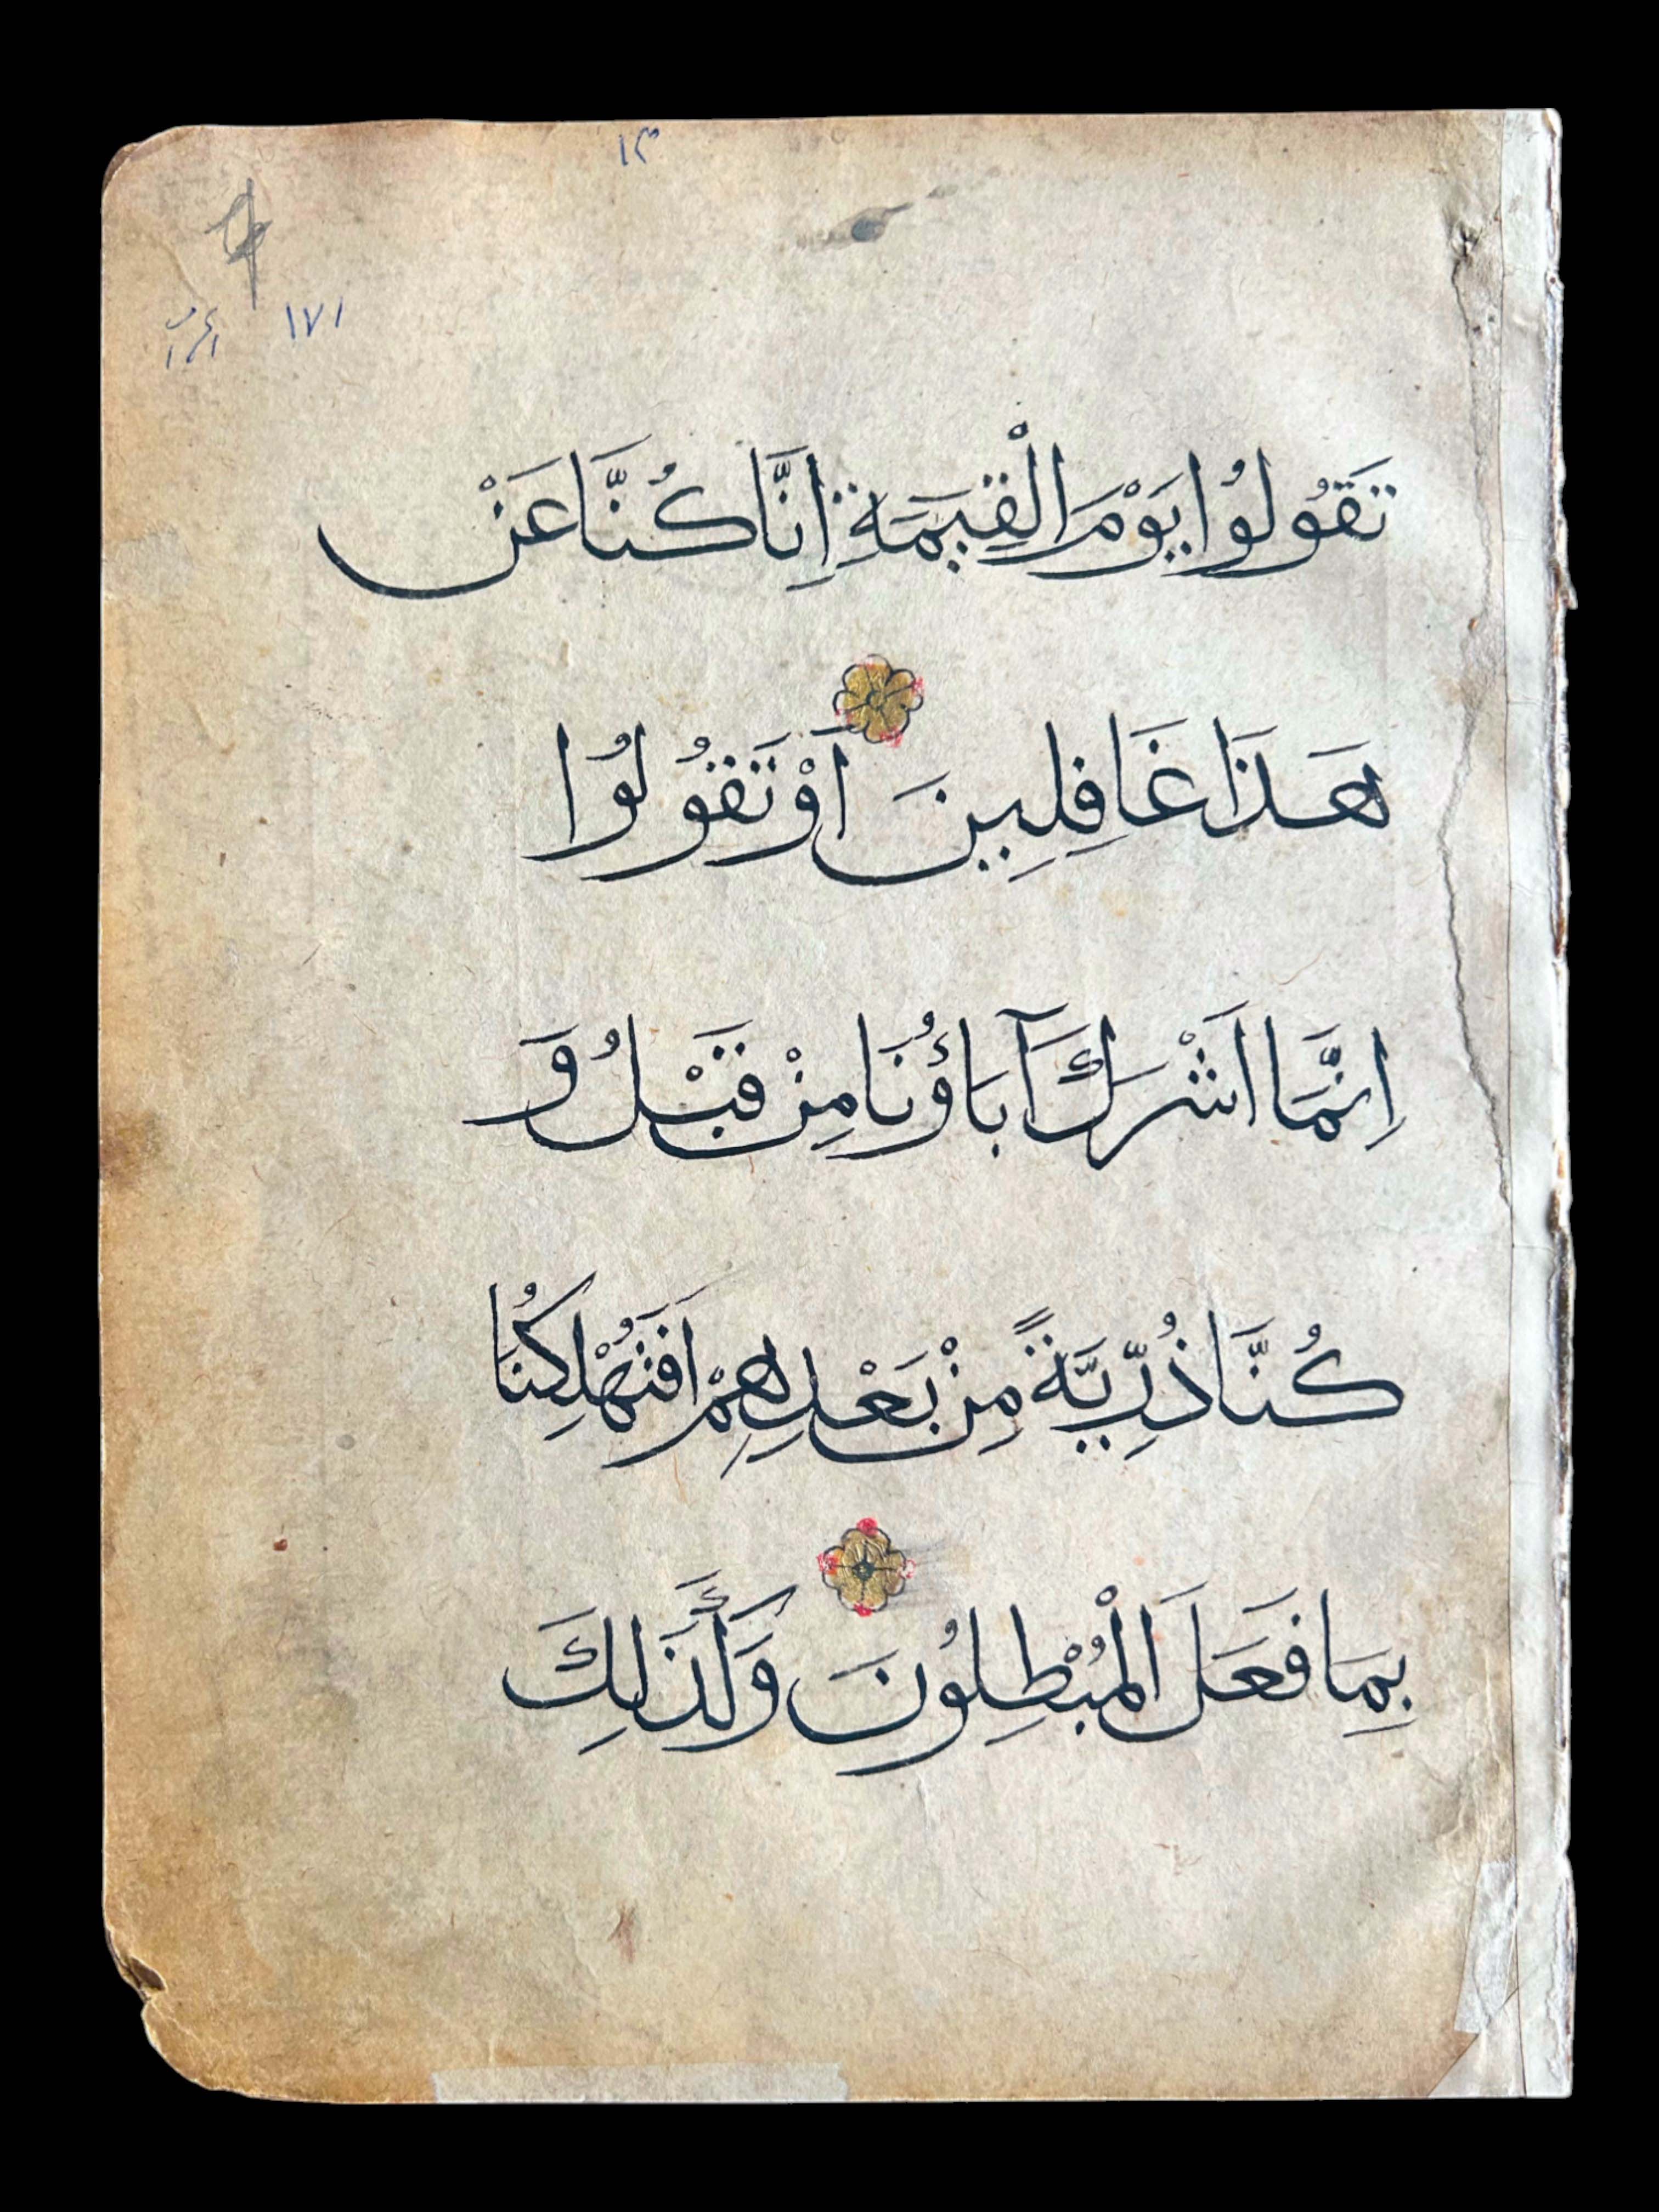 ١٣
١٧١
تَقُولُوا يَوْمَ الْقِيمَةِ اِنَّا كُنَّا عَنْ
هَذَا غَافِلِينَ اَوْ تَقُولُوا
اِنَّمَا اَشْرَكَ آبَاؤُنَا مِنْ قَبْلُ وَ
كُنَّا ذُرِّيَّةً مِنْ بَعْدِهِمْ اَفَتُهْلِكُنَا
بِمَا فَعَلَ الْمُبْطِلُونَ وَكَذَلِكَ